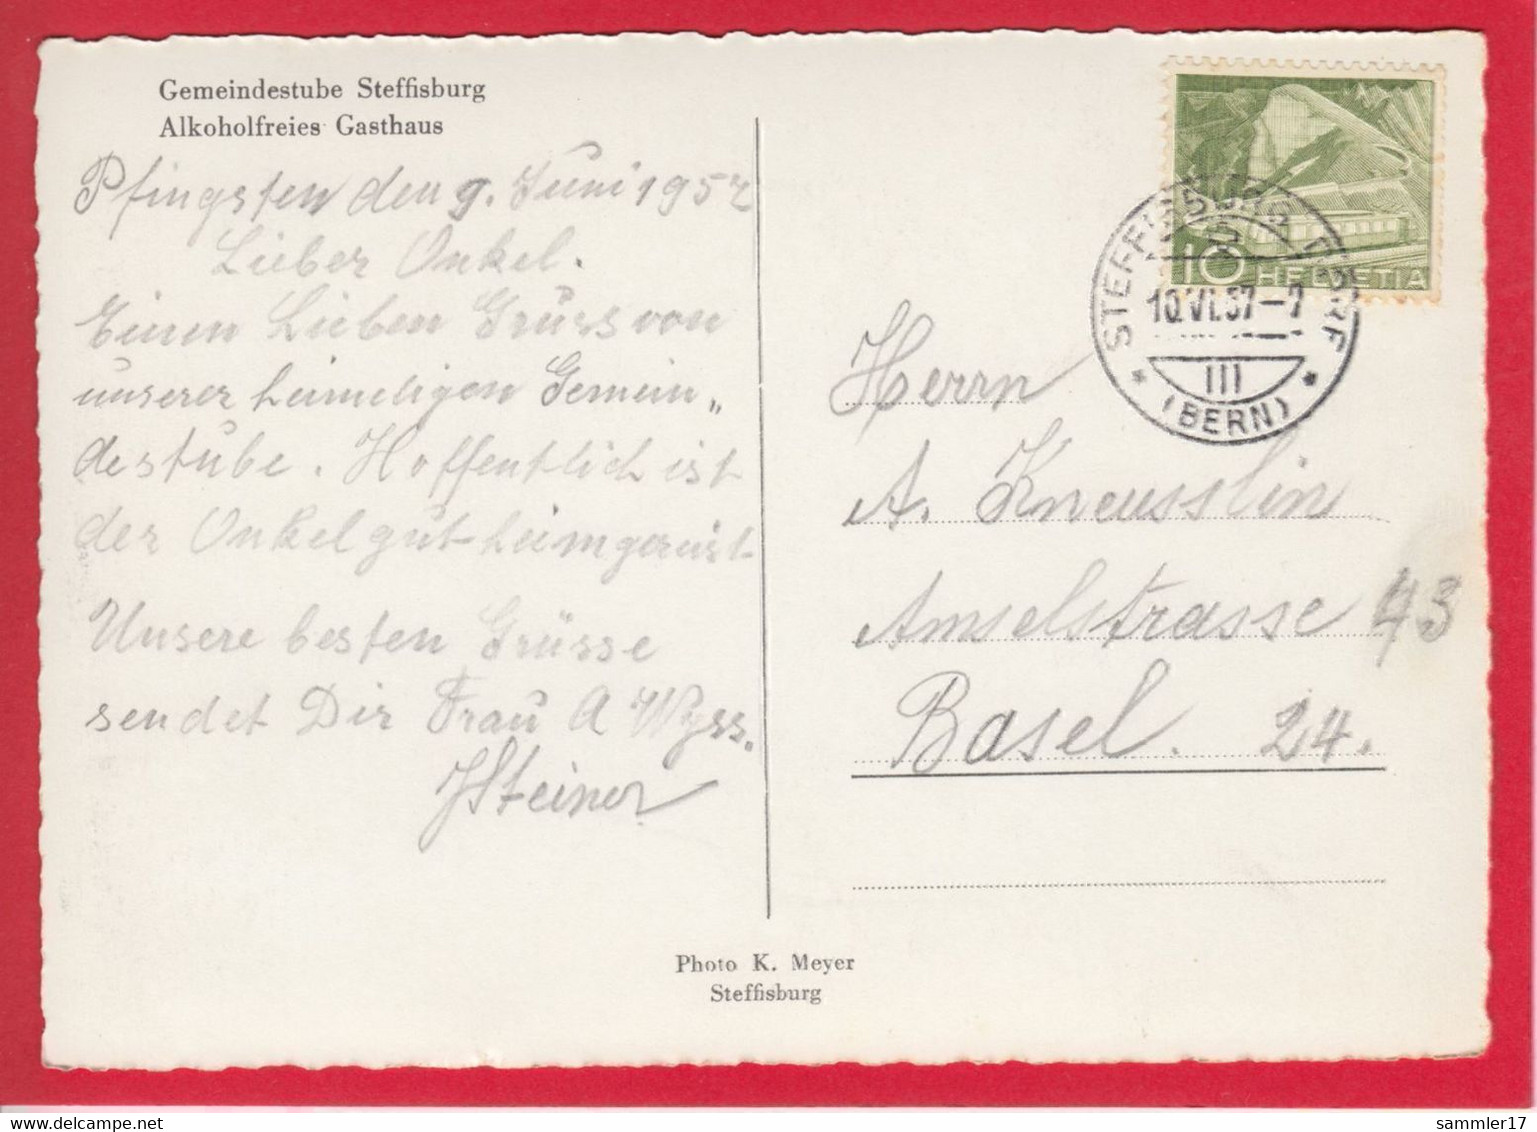 Gemeindestube Steffisburg
Alkoholfreies Gasthaus
Pfingsten den 9. Juni 1957
Lieber Onkel.
Einen Lieben Gruss von
unserer heimeligen Gemein„
destube. Hoffentlich ist
der Onkel gut heimgereist
Unsere besten Grüsse
sendet Dir Frau A Wyss.
J Steiner
10 HELVETIA
STEFFISBURG DORF
10.VI.57-7
III
(BERN)
Herrn
A. Kneusslin
Amselstrasse 43
Basel. 24.
Photo K. Meyer
Steffisburg
sammler17